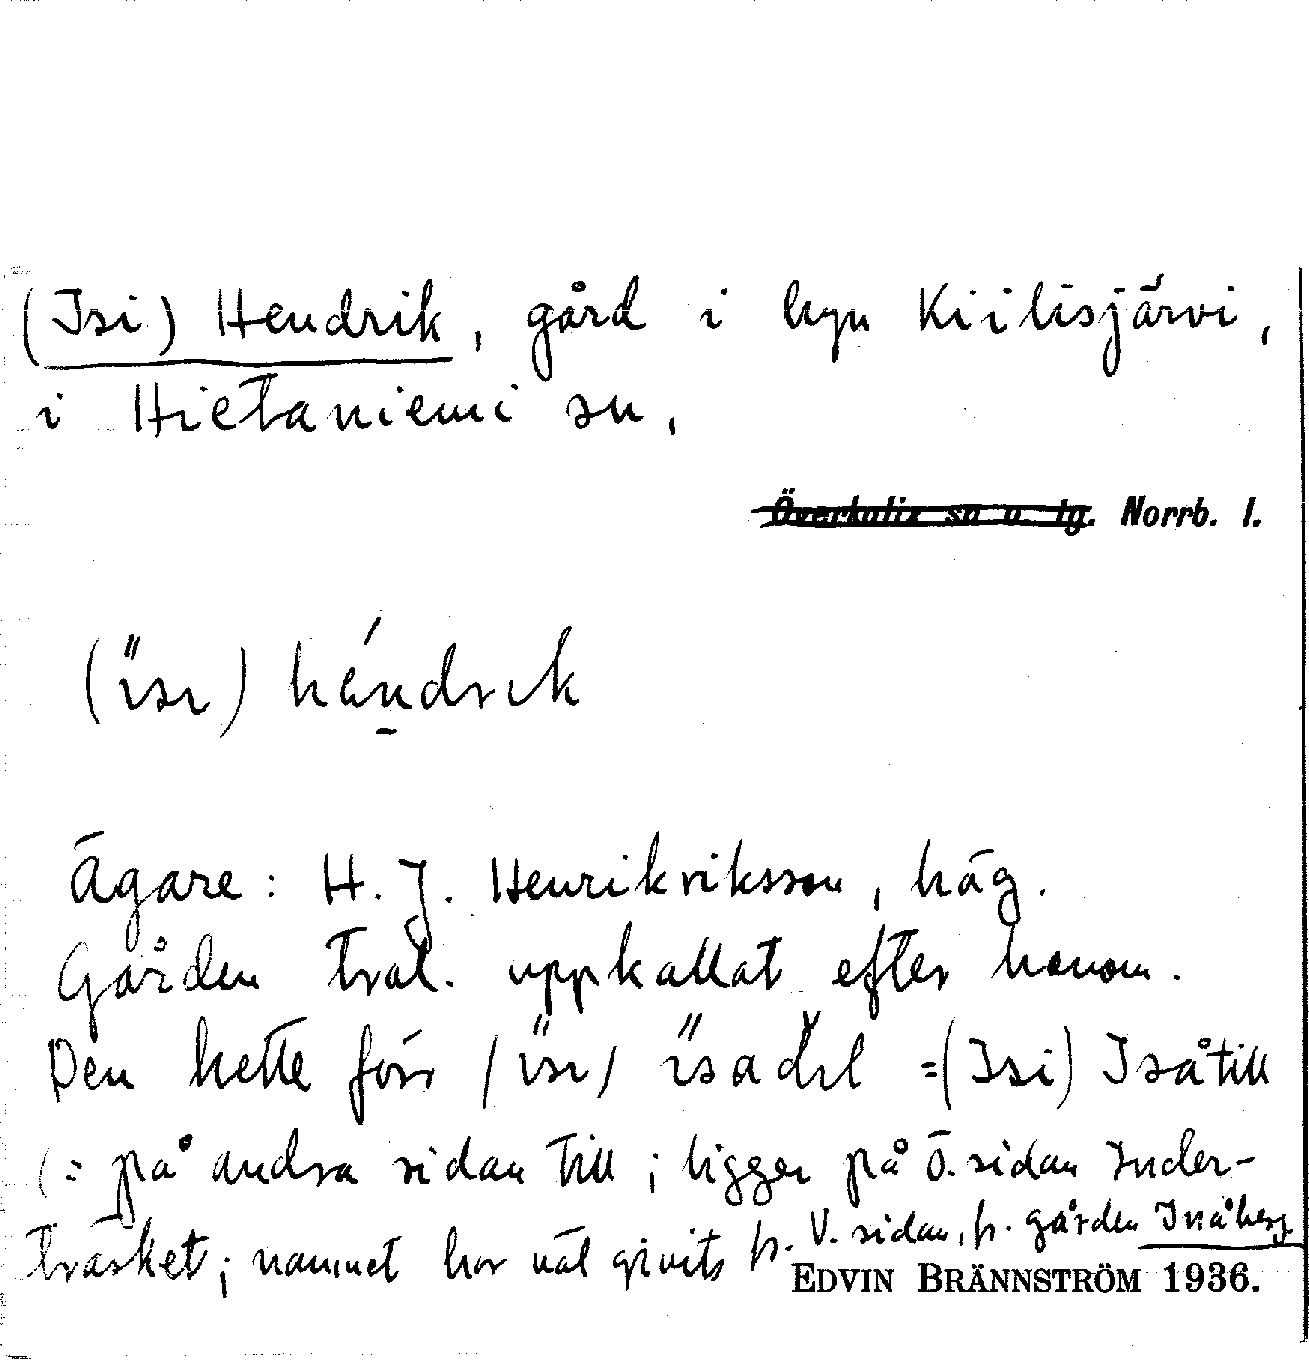 (Isi) Hendrik, gård i byn Kiilisjärvi,
i Hietaniemi sn,
Överkalix sn o. tg. Norrb. l.
(i̋sı) héndrık
Ägare: H. J. Henrikriksson, häg.
Gården trol. uppkallat efter honom.
Den hette förr (i̋sı) i̋sadıl =(Isi) Isåtill
(: på andra sidan till; ligger på Ö. sidan Inder-
träsket; namnet har väl givits fr. V. sidan, fr. gården Inåberg
EDVIN BRÄNNSTRÖM 1936.